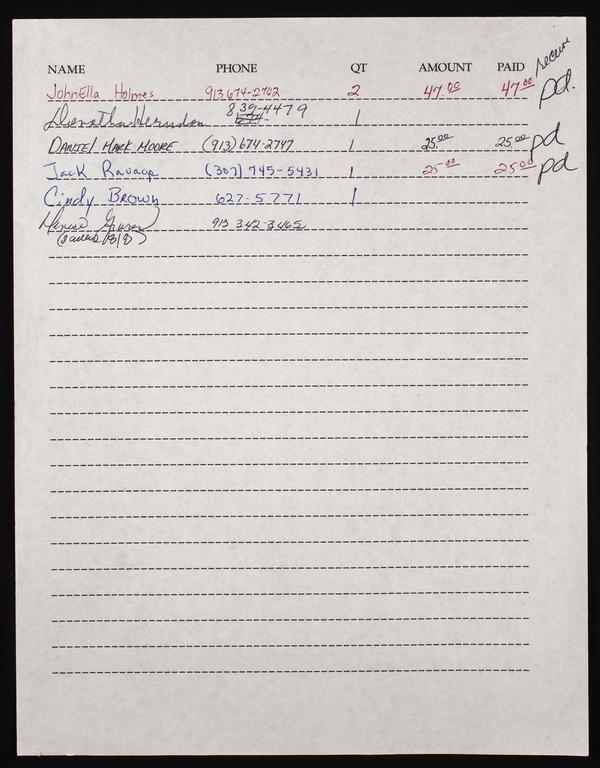 NAME PHONE QT AMOUNT PAID
JohnElla Holmes 913 674-2702 2 47.00 47.00 pd.
Herndon 839-4479 1
DANIEL MARK MOORE (913) 674-2747 1 25.00 25.00 pd
Jack Ravage (307) 745-5431 1 25.00 25.00 pd
Cindy Brown 627-5771 1
913 342-3465